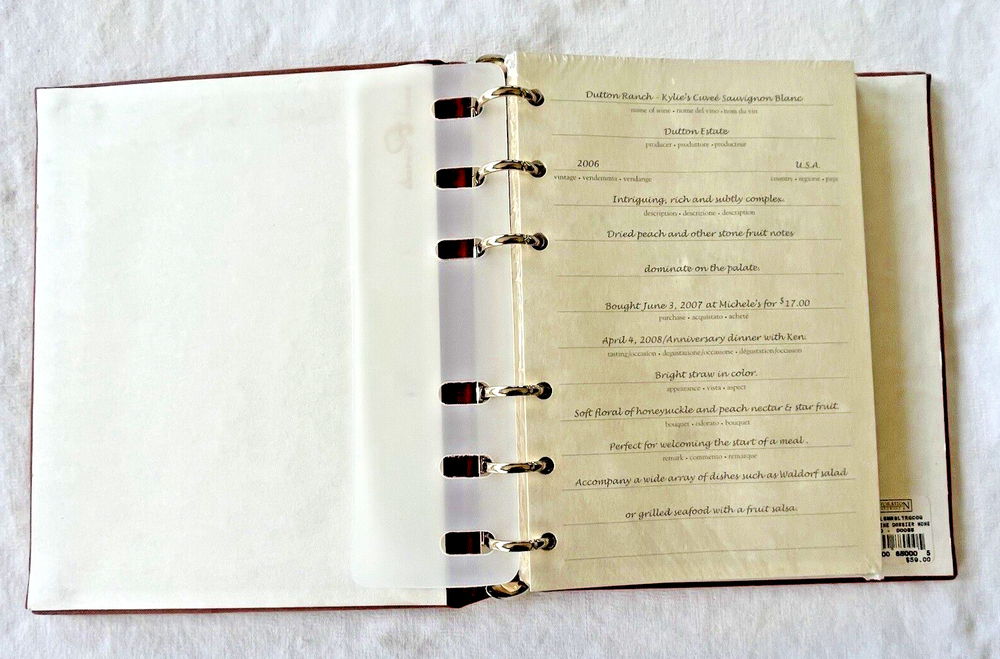 Dutton Ranch - Kylie's Cuveé Sauvignon Blanc
name of wine • nome del vino • nom du vin
Dutton Estate
producer • produttore • producteur
2006 U.S.A.
vintage • vendemmia • vendange country • regione • pays
Intriguing, rich and subtly complex.
description • descrizione • description
Dried peach and other stone fruit notes
dominate on the palate.
Bought June 3, 2007 at Michele's for $17.00
purchase • acquistato • acheté
April 4, 2008/Anniversary dinner with Ken.
tasting/occasion • degustazione/occasione • dégustation/occasion
Bright straw in color.
appearance • vista • aspect
Soft floral of honeysuckle and peach nectar & star fruit.
bouquet • odorato • bouquet
Perfect for welcoming the start of a meal.
remark • commento • remarque
Accompany a wide array of dishes such as Waldorf salad
or grilled seafood with a fruit salsa.
$59.00